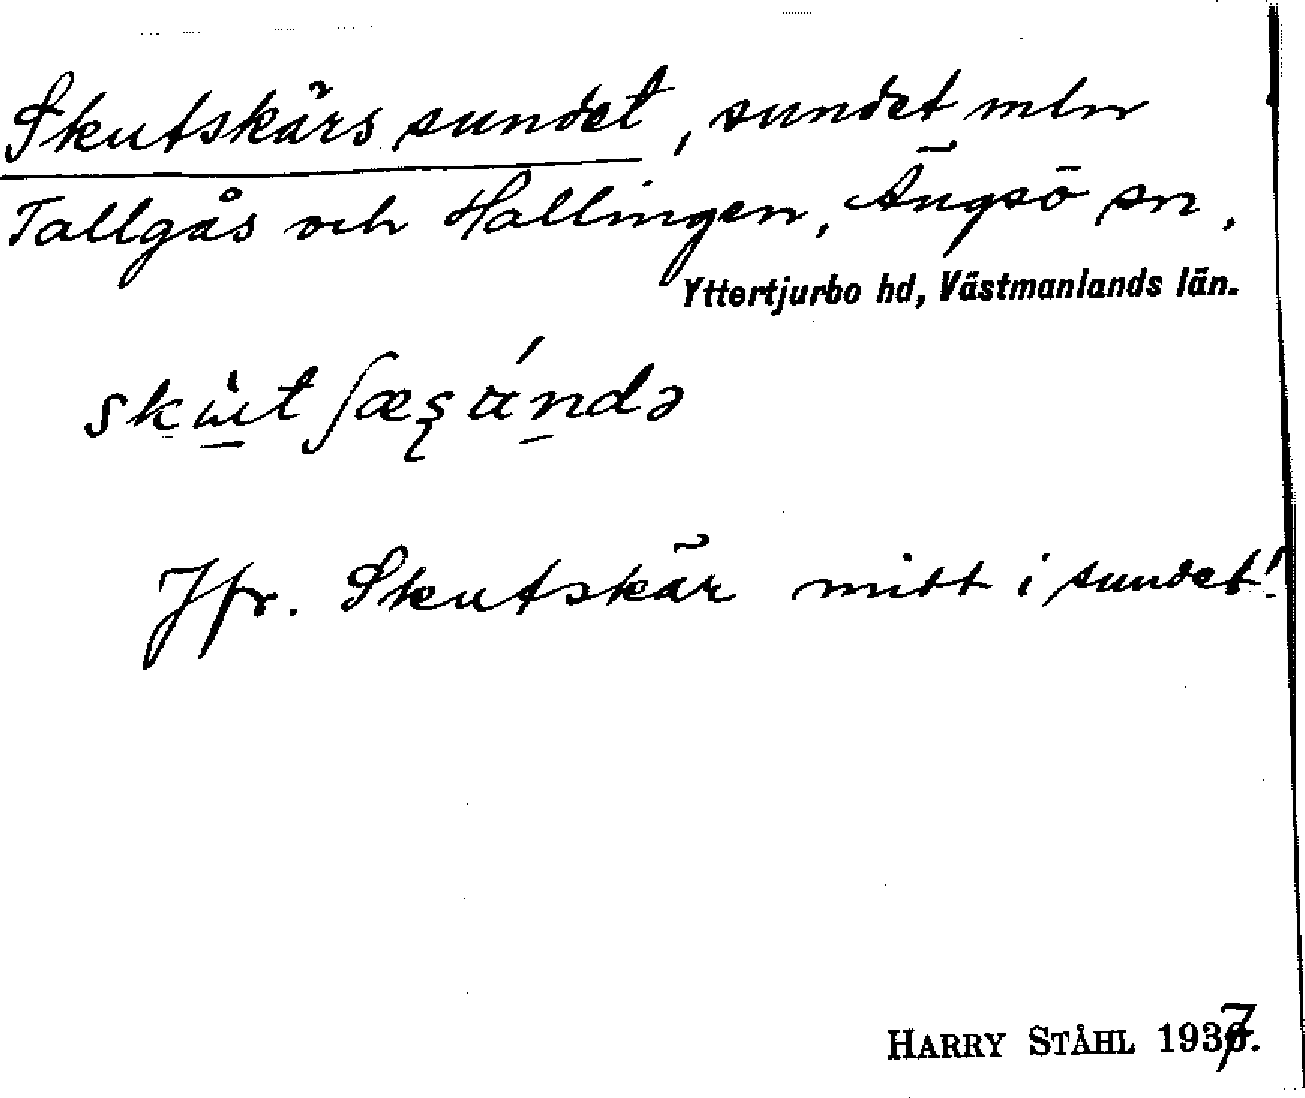 Skutskärs sundet, sundet mln
Tallgås och Hallingen, Ängsö sn,
Yttertjurbo hd, Västmanlands län.
Jfr. Skutskär mitt i sundet!
HARRY STÅHL 1937.